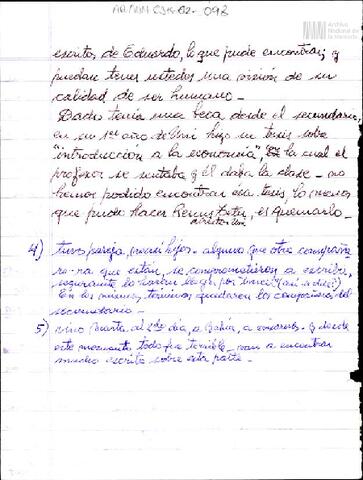 Archivo
Nacional de
la Memoria
escritos de Eduardo, lo que pude encontrar, y
puedan tener ustedes una visión de su
calidad de ser humano.-
Dado tenía una beca desde el secundario,
en su 1er año de hizo su tesis sobre
"introducción a la economía", En la cual el
profesor se sentaba y él daba la clase - no
hemos podido encontrar esa tesis, lo menos
que pudo hacer era quemarlo.-
4) tuvo pareja, hijos - algunos que otro compañe-
ro-ra que están, se comprometieron a escribir,
seguramente lo harán llegar por (así a decir)
En los mismos términos quedaron los compañeros del
secundario.-
5) vino Marta al 2do día, a Bahía, a avisarnos. Y desde
este momento todo fue terrible - van a encontrar
mucho escrito sobre esta parte.-